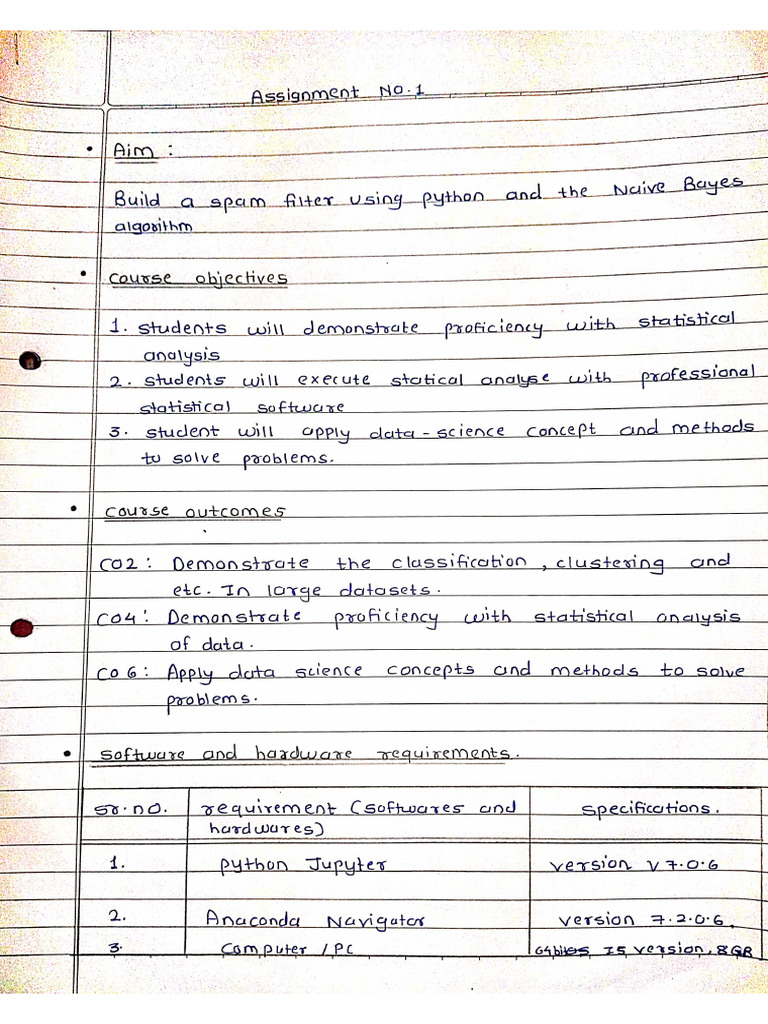 Assignment No.1
• Aim :
Build a spam filter using python and the Naive Bayes
algorithm
• course objectives
1. students will demonstrate proficiency with statistical
analysis
2. students will execute statical analyse with professional
statistical software
3. student will apply data-science concept and methods
to solve problems.
• course outcomes
CO2: Demonstrate the classification, clustering and
etc. In large datasets.
CO4: Demonstrate proficiency with statistical analysis
of data.
CO6: Apply data science concepts and methods to solve
problems.
• software and hardware requirements.
sr.no. requirement (softwares and specifications.
hardwares)
1. python Jupyter version v 7.0.6
2. Anaconda Navigator version 7.2.0.6,
3. computer / PC I5 version, 8GB